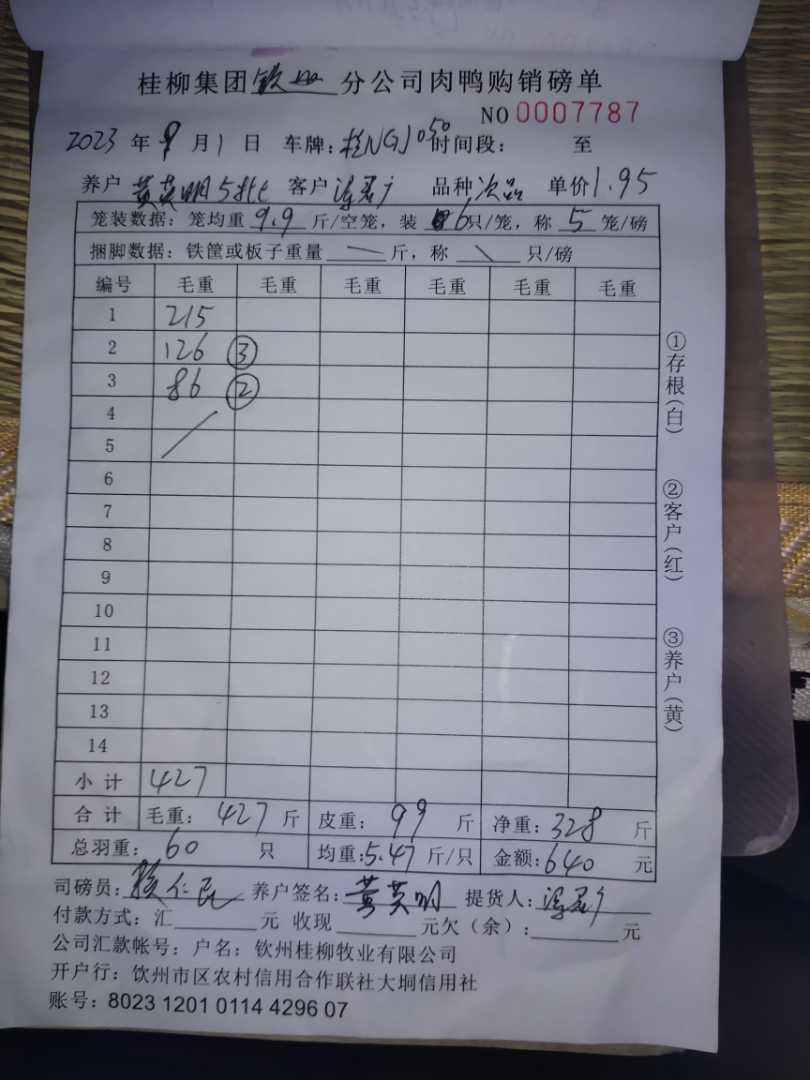 桂柳集团钦州分公司肉鸭购销磅单
NO 0007787
2023 年 9 月 1 日 车牌：桂NGJ050 时间段： 至
养户 黄英明5批 客户 品种 次品 单价 1.95
笼装数据：笼均重 9.9 斤/空笼，装 6只/笼，称 5 笼/磅
捆脚数据：铁筐或板子重量 — 斤，称 \ 只/磅
编号 毛重 毛重 毛重 毛重 毛重 毛重
1 215
2 126 ③
3 86 ②
4
5
6
7
8
9
10
11
12
13
14
小计 427
合计 毛重：427 斤 皮重：99 斤 净重：328 斤
总羽重：60 只 均重：5.47 斤/只 金额：640 元
司磅员： 仁民 养户签名：黄英明 提货人：
付款方式：汇 元 收现 元欠（余）： 元
公司汇款帐号：户名：钦州桂柳牧业有限公司
开户行：饮州市区农村信用合作联社大垌信用社
账号：8023 1201 0114 4296 07
①存根(白)
②客户(红)
③养户(黄)